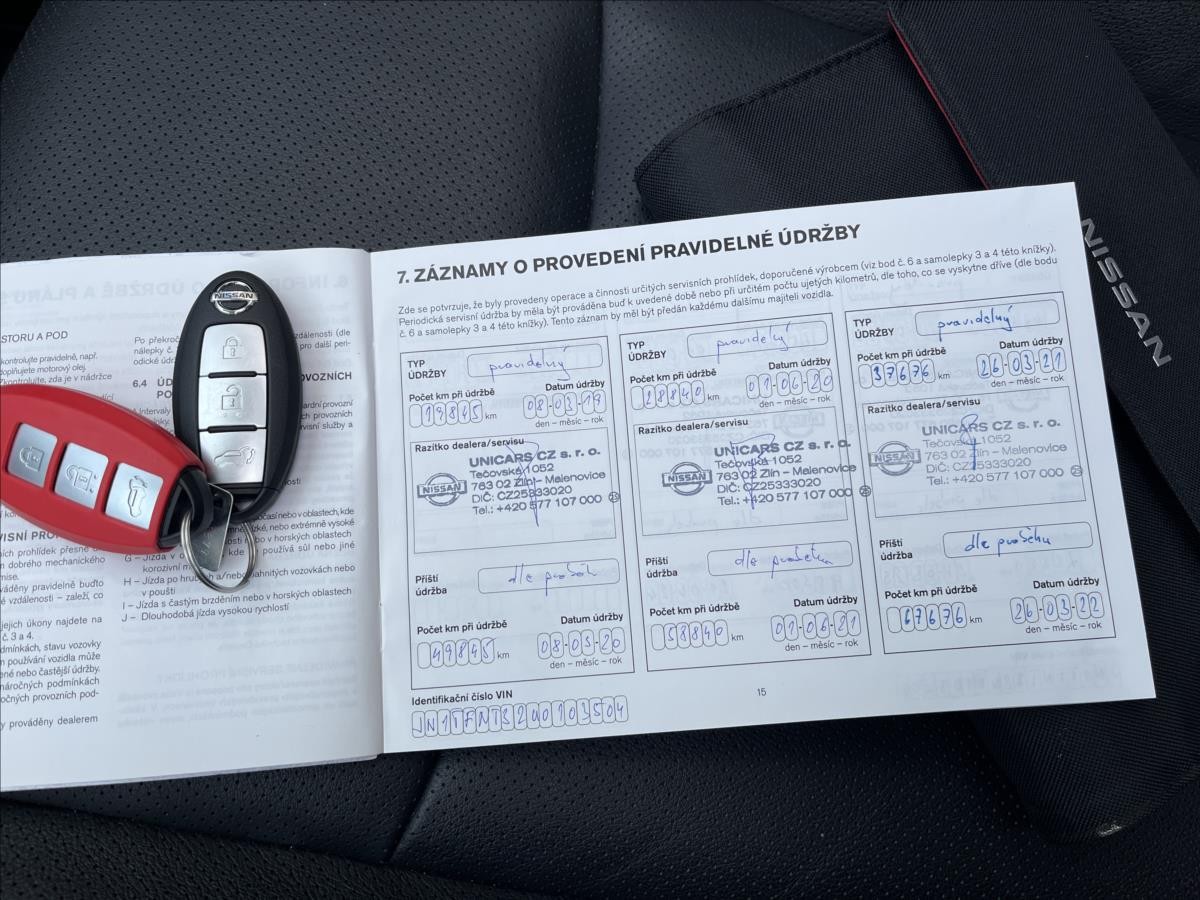 NISSAN
NISSAN
STORU A POD
kontrolujte pravidelně, např.
doplňujete motorový olej.
Zkontrolujte, zda je v nádržce
VISNÍ
ch prohlídek přesně
dobrého mechanického
váděny pravidelně buďto
vzdálenosti – záleží, co
jejich úkony najdete na
č. 3 a 4.
dmínkách, stavu vozovky
používání vozidla může
né nebo častější údržby.
náročných podmínkách
očných provozních pod-
y prováděny dealerem
Po překroč
nálepky č.
odické údr
zdálenosti (dle
pro další peri-
6.4 ÚD
PO
ROVOZNÍCH
Intervaly
ardní provozní
h provozních
rvisní služby a
časí nebo v oblastech, kde
nebo extrémně vysoké
nebo v horských oblastech
G – Jízda v o
kde
používá sůl nebo jiné
korozivní m
H – Jízda po hru
a/nebo
ahnitých vozovkách nebo
v poušti
I – Jízda s častým brzděním nebo v horských oblastech
J – Dlouhodobá jízda vysokou rychlostí
7. ZÁZNAMY O PROVEDENÍ PRAVIDELNÉ ÚDRŽBY
Zde se potvrzuje, že byly provedeny operace a činnosti určitých servisních prohlídek, doporučené výrobcem (viz bod č. 6 a samolepky 3 a 4 této knížky).
Periodická servisní údržba by měla být prováděna buď k uvedené době nebo při určitém počtu ujetých kilometrů, dle toho, co se vyskytne dříve (dle bodu
č. 6 a samolepky 3 a 4 této knížky). Tento záznam by měl být předán každému dalšímu majiteli vozidla.
TYP
ÚDRŽBY
pravidelný
Počet km při údržbě
Datum údržby
19845 km
08-03-19
den – měsíc – rok
Razítko dealera/servisu
NISSAN
UNICARS CZ s. r. o.
Tečovská 1052
763 02 Zlín – Malenovice
DIČ: CZ25333020
Tel.: +420 577 107 000 23
Příští
údržba
dle
Počet km při údržbě
Datum údržby
49845 km
08-03-20
den – měsíc – rok
TYP
ÚDRŽBY
pravidelný
Počet km při údržbě
Datum údržby
28840 km
01-06-20
den – měsíc – rok
Razítko dealera/servisu
NISSAN
UNICARS CZ s. r. o.
Tečovská 1052
763 02 Zlín – Malenovice
DIČ: CZ25333020
Tel.: +420 577 107 000 23
Příští
údržba
dle průběhu
Počet km při údržbě
Datum údržby
58840 km
01-06-21
den – měsíc – rok
TYP
ÚDRŽBY
pravidelný
Počet km při údržbě
Datum údržby
37676 km
26-03-21
den – měsíc – rok
Razítko dealera/servisu
NISSAN
UNICARS CZ s. r. o.
Tečovská 1052
763 02 Zlín – Malenovice
DIČ: CZ25333020
Tel.: +420 577 107 000 23
Příští
údržba
dle průběhu
Počet km při údržbě
Datum údržby
67676 km
26-03-22
den – měsíc – rok
Identifikační číslo VIN
JN1TFNT32U0103504
15